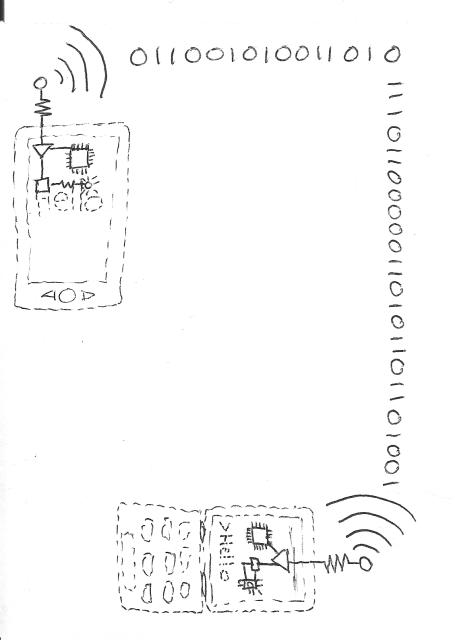 011001010011010
1110110000011010101101101001
>Hello